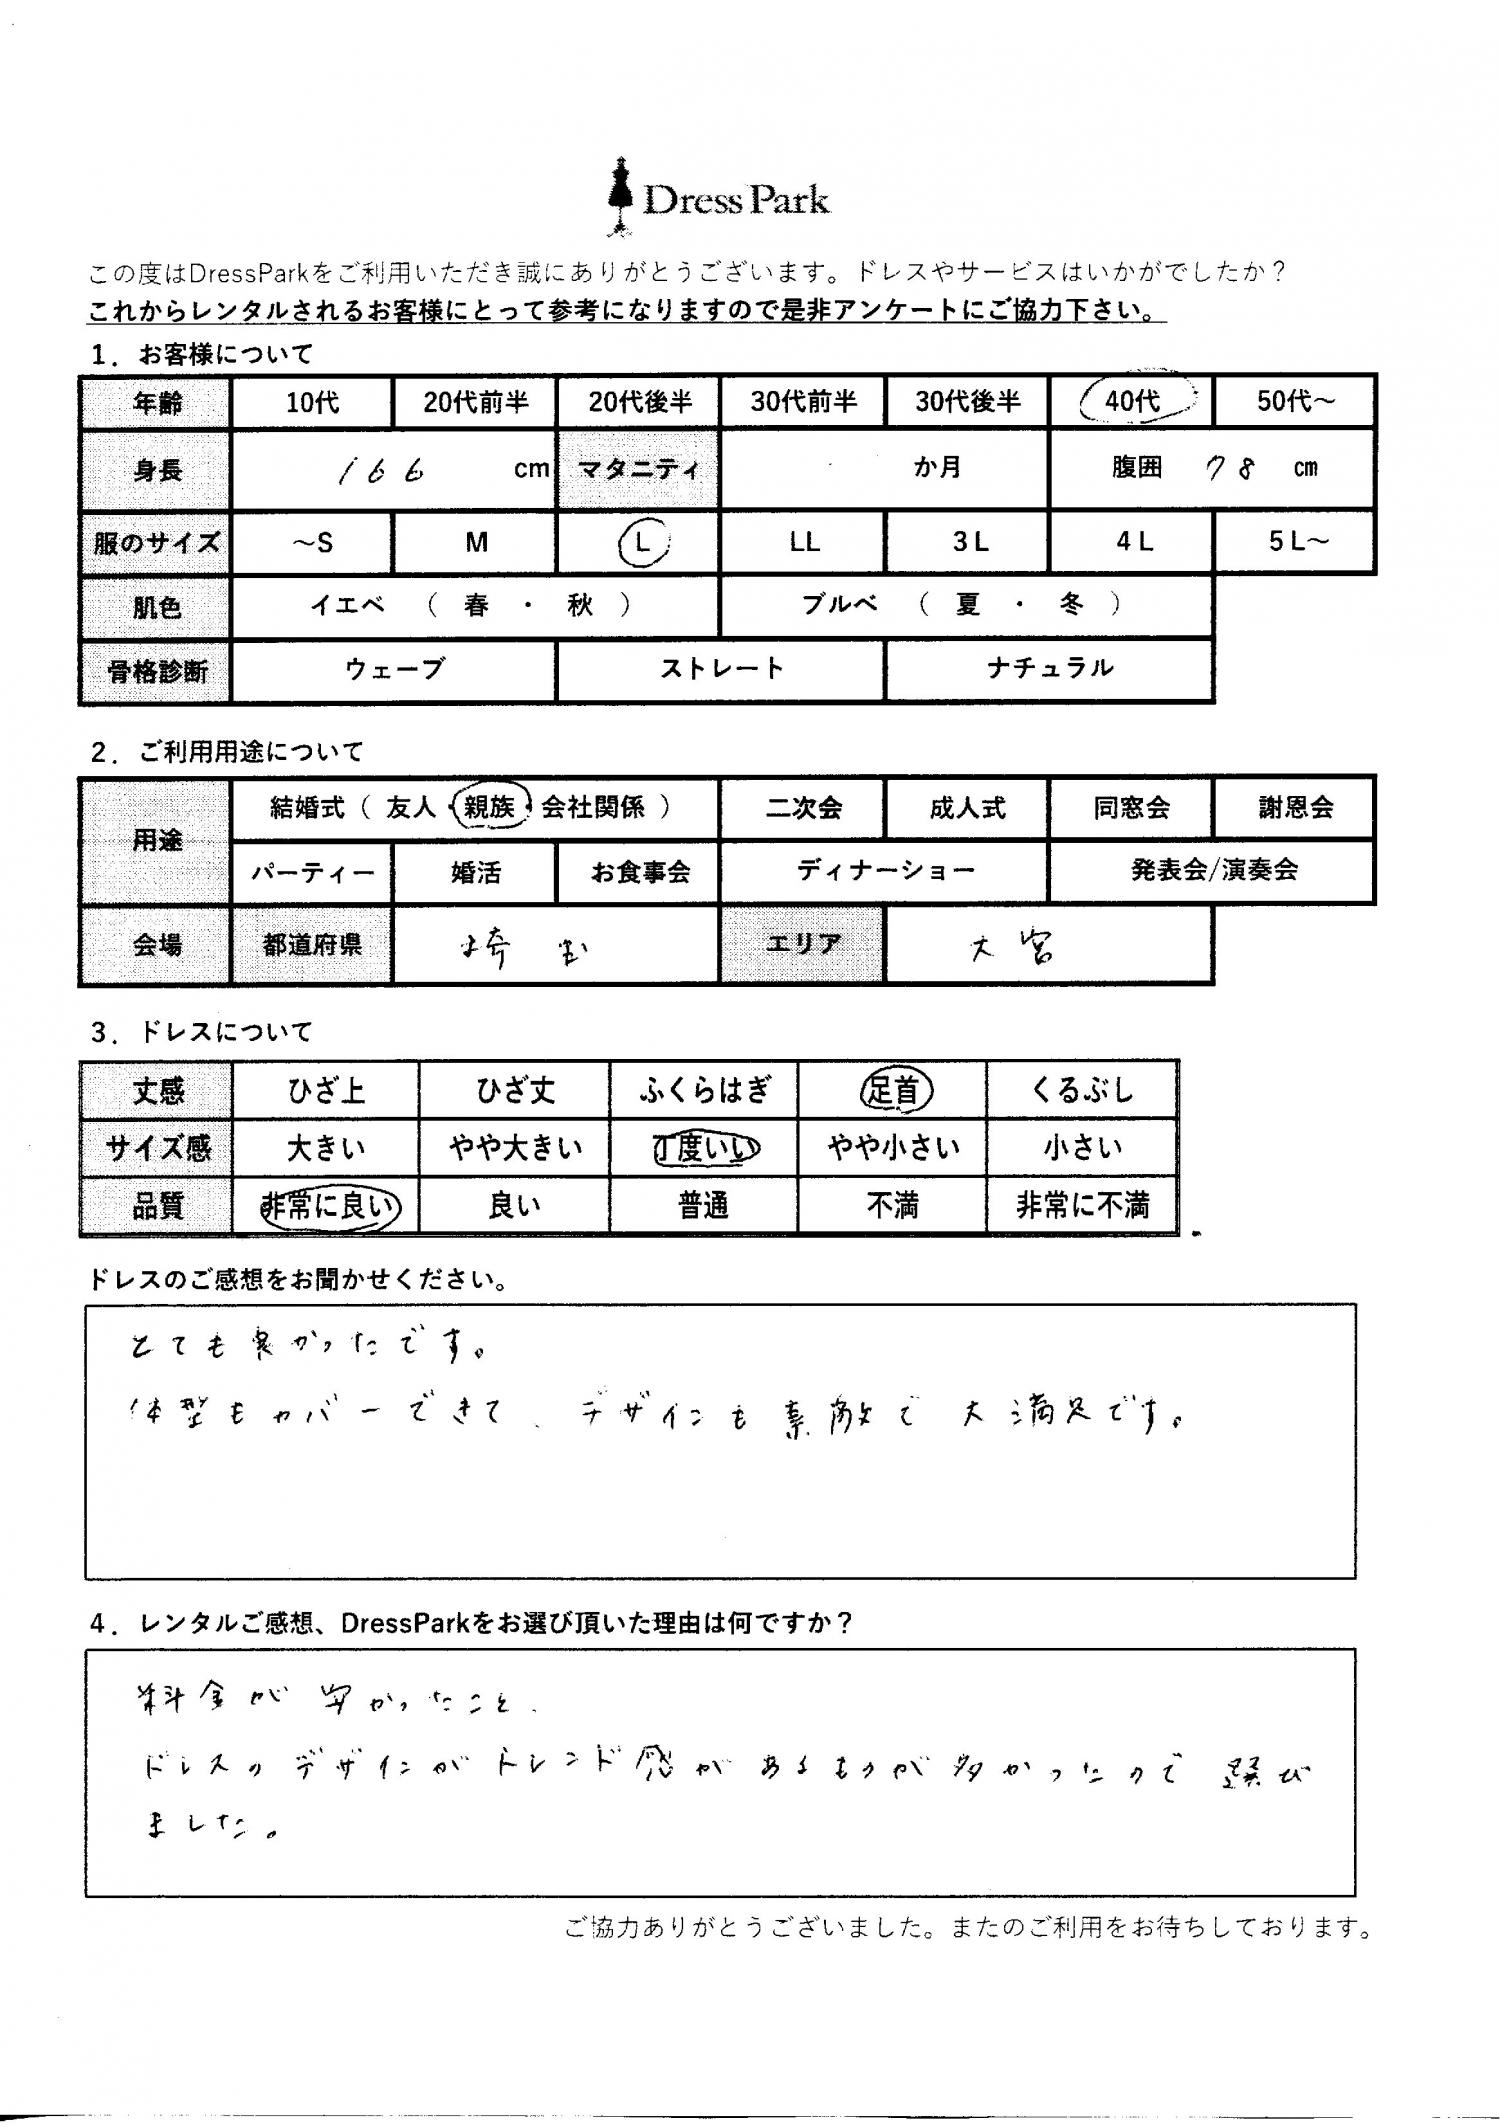 Dress Park
この度はDressParkをご利用いただき誠にありがとうございます。ドレスやサービスはいかがでしたか？
これからレンタルされるお客様にとって参考になりますので是非アンケートにご協力下さい。
1．お客様について
年齢 10代 20代前半 20代後半 30代前半 30代後半 40代 50代～
身長 166 cm マタニティ か月 腹囲 78 cm
服のサイズ ～S M L LL 3L 4L 5L～
肌色 イエベ （ 春 ・ 秋 ） ブルベ （ 夏 ・ 冬 ）
骨格診断 ウェーブ ストレート ナチュラル
2．ご利用用途について
用途 結婚式（ 友人・親族・会社関係 ） 二次会 成人式 同窓会 謝恩会
パーティー 婚活 お食事会 ディナーショー 発表会/演奏会
会場 都道府県 埼玉 エリア 大宮
3．ドレスについて
丈感 ひざ上 ひざ丈 ふくらはぎ 足首 くるぶし
サイズ感 大きい やや大きい 丁度いい やや小さい 小さい
品質 非常に良い 良い 普通 不満 非常に不満
ドレスのご感想をお聞かせください。
とても良かったです。
体型もカバーできて、デザインも素敵で大満足です。
4．レンタルご感想、DressParkをお選び頂いた理由は何ですか？
料金が安かったこと、
ドレスのデザインがトレンド感があるものが多かったので選び
ました。
ご協力ありがとうございました。またのご利用をお待ちしております。